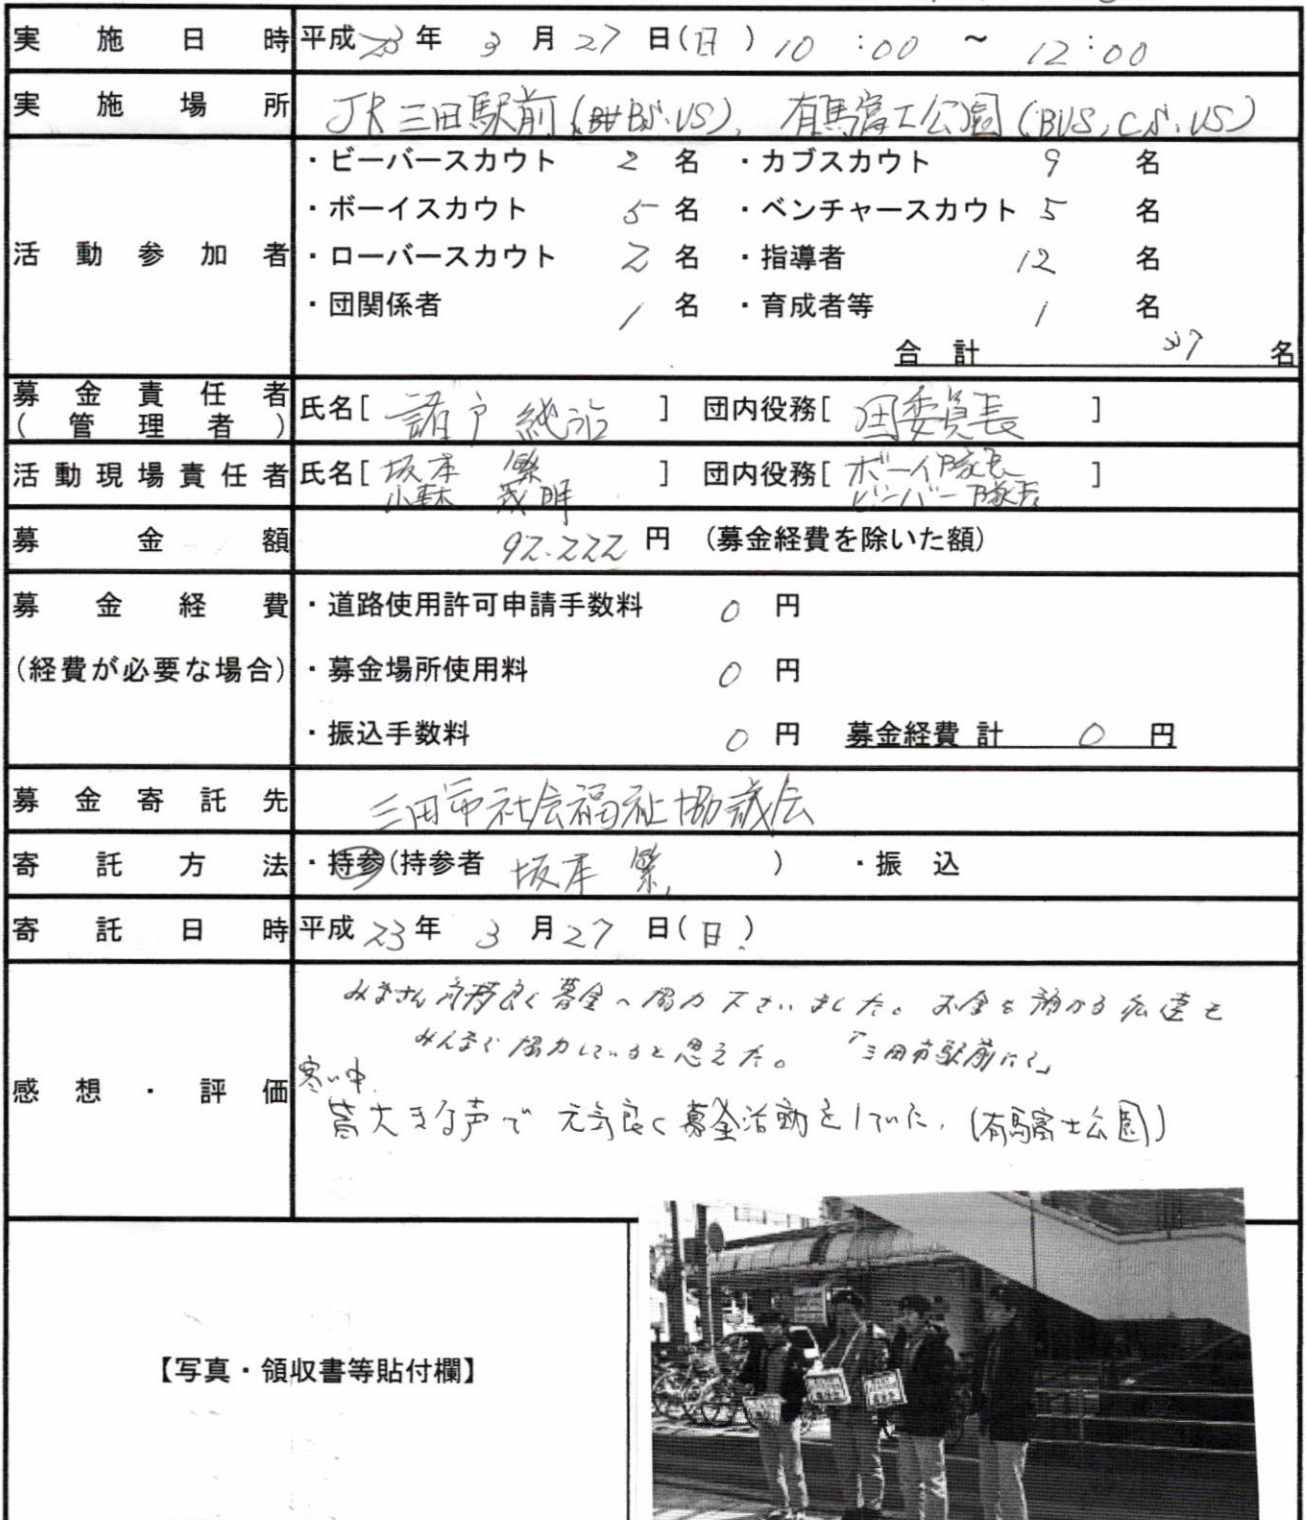 実施日時 平成23年 3月27日(日) 10:00 ~ 12:00
実施場所 JR三田駅前(BS.VS)、有馬富士公園(BVS,CS,VS)
・ビーバースカウト 2名 ・カブスカウト 9名
・ボーイスカウト 5名 ・ベンチャースカウト 5名
活動参加者 ・ローバースカウト 2名 ・指導者 12名
・団関係者 1名 ・育成者等 1名
合計 37名
募金責任者 氏名[ 諸戸 純治 ] 団内役務[ 団委員長 ]
(管理者)
活動現場責任者 氏名[ 坂本 繁 ] 団内役務[ ボーイ隊長 ]
茂明 ビーバー隊長
募金額 92.222円 (募金経費を除いた額)
募金経費 ・道路使用許可申請手数料 0円
(経費が必要な場合) ・募金場所使用料 0円
・振込手数料 0円 募金経費計 0円
募金寄託先 三田市社会福祉協議会
寄託方法 ・持参(持参者 坂本 繁 ) ・振込
寄託日時 平成23年 3月27日(日)
みなさん気持良く募金へ協力下さいました。お金を預かる私達も
みんなで協力していると思えた。「三田市駅前にて」
感想・評価 寒い中、
皆大きな声で元気良く募金活動をしていた。(有馬富士公園)
【写真・領収書等貼付欄】